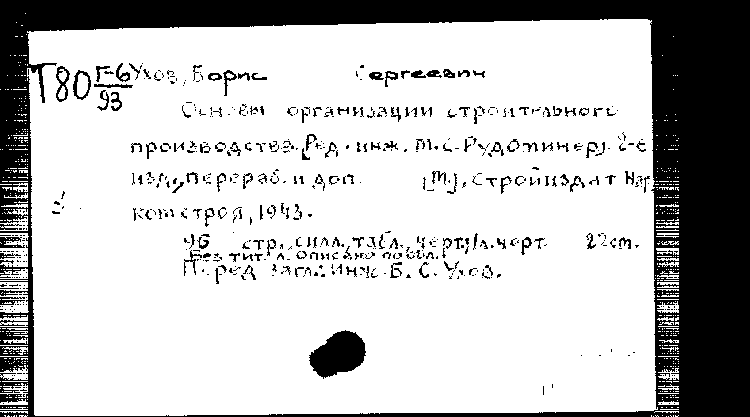 Т80 Г-6/93 Ухов, Борис Сергеевич
Основы организации строительного
производства. [Ред. инж. М.С. Рудоминер]. 2-е
изд., перераб. и доп. [М.], Стройиздат Нар
комстроя, 1943.
96 стр., с илл., табл., черт; 1 л. черт. 22 см.
Без тит. л. Описано по обл.
Перед загл.: Инж. Б. С. Ухов.